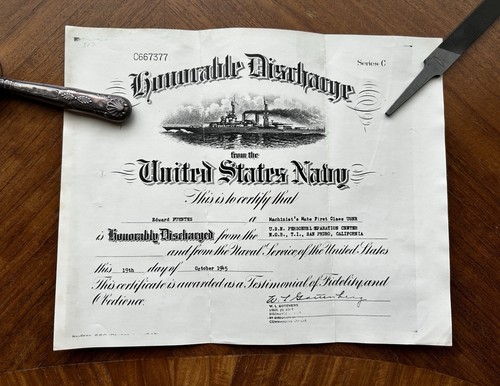 C667377
Series C
Honorable Discharge
from the
United States Navy
This is to certify that
Edward FUENTES a Machinist's Mate First Class USNR
is Honorably Discharged from the U.S.N. PERSONNEL SEPARATION CENTER
N.O.B., T.I., SAN PEDRO, CALIFORNIA
and from the Naval Service of the United States
this 19th day of October 1945
This certificate is awarded as a Testimonial of Fidelity and
Obedience.